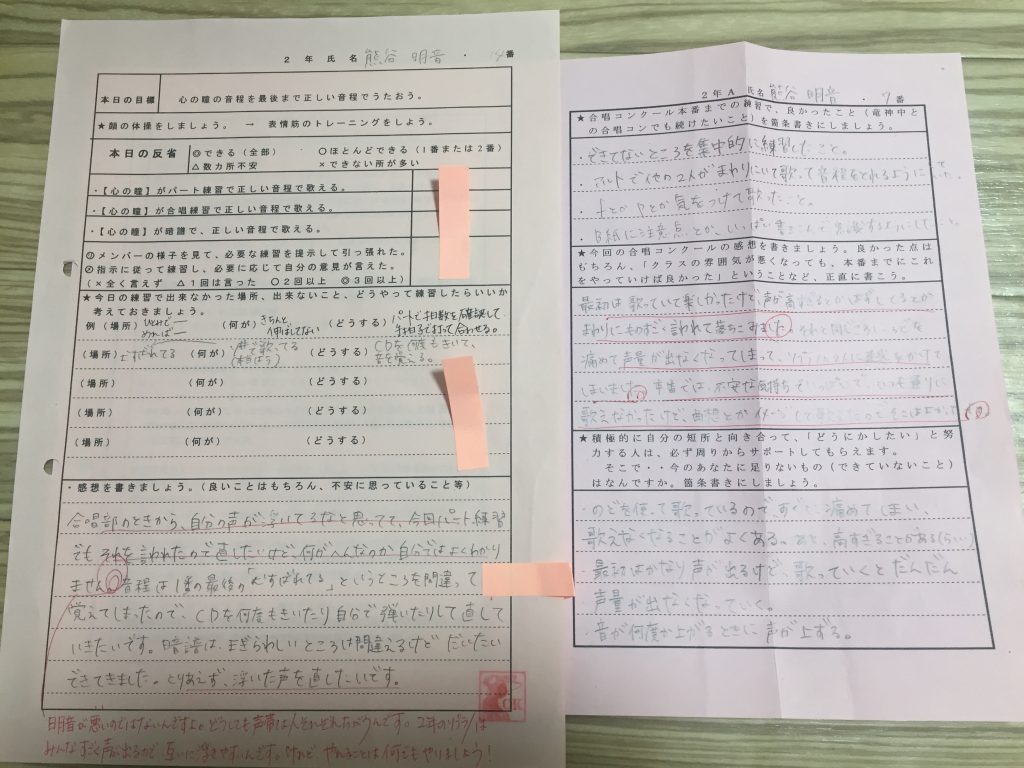 2年 氏名 熊谷 明音 ・ 番
本日の目標 心の瞳の音程を最後まで正しい音程でうたおう。
★顔の体操をしましょう。 → 表情筋のトレーニングをしよう。
本日の反省 ◎できる(全部) ○ほとんどできる(1番または2番)
△数カ所不安 ×できない所が多い
・【心の瞳】がパート練習で正しい音程で歌える。
・【心の瞳】が合唱練習で正しい音程で歌える。
・【心の瞳】が暗譜で、正しい音程で歌える。
①メンバーの様子を見て、必要な練習を提示して引っ張れた。
②指示に従って練習し、必要に応じて自分の意見が言えた。
(×全く言えず △1回は言った ○2回以上 ◎3回以上)
★今日の練習で出来なかった場所、出来ないこと、どうやって練習したらいいか
考えておきましょう。
例(場所) (何が)きちんと伸ばしてない (どうする)パートで拍数を確認して
合わせる。
(場所)むすばれてる (何が) で歌ってる (どうする)CDを何度もきいて、
音を覚える。
(場所) (何が) (どうする)
(場所) (何が) (どうする)
(場所) (何が) (どうする)
・感想を書きましょう。(良いことはもちろん、不安に思っていること等)
合唱部のときから、自分の声が浮いてるなと思ってて、今回パート練習
でもそれを言われたので直したいけど、何がへんなのか自分ではよくわかり
ません。音程は1番の最後の「むすばれてる」というところを間違って
覚えてしまったので、CDを何度もきいたり自分で弾いたりして直して
いきたいです。暗譜は、まぎらわしいところは間違えるけど だいたい
できてきました。とりあえず、浮いた声を直したいです。
OK
明音が悪いのではないんですよ。どうしても声帯は人それぞれちがうんです。2年のソプラノは
みんなすごく声が出るので、互いに浮きやすいんです。けれど、やれることは何でもやりましょう!
2年A 氏名 熊谷 明音 ・ 7番
★合唱コンクール本番までの練習で、良かったこと(竜神中と
の合唱コンでも続けたいこと)を箇条書きにしましょう。
・できてないところを集中的に練習したこと。
・アルトで他の2人がまわりにいて歌って音程をとれるように
・fとかpとか気をつけて歌ったこと。
・B紙に注意点とか、いっぱい書きこんで意識するように
★今回の合唱コンクールの感想を書きましょう。良かった点は
もちろん、「クラスの雰囲気が悪くなっても、本番までにこれ
をやっていけば良かった」ということなど、正直に書こう。
最初は歌っていて楽しかったけど、声が
まわりにものすごく言われて落ちこみました。それと同じころに のどを
痛めて声量が出なくなってしまって、ソプラノの人に迷惑をかけて
しまいました。本番では、不安な気持ちでいっぱいで、いつも通りに
歌えなかったけど、曲想とかイメージして歌えたのでそこはよかった
★積極的に自分の短所と向き合って、「どうにかしたい」と努
力する人は、必ず周りからサポートしてもらえます。
そこで・・今のあなたに足りないもの(できていないこと)
はなんですか。箇条書きにしましょう。
・のどを使って歌っているので すぐに痛めてしまい、
歌えなくなることがよくある。あと、高すぎることがある(らしい)
・最初はかなり声が出るけど、歌っていくとだんだん
声量が出なくなっていく。
・音が何度か上がるときに声が上ずる。